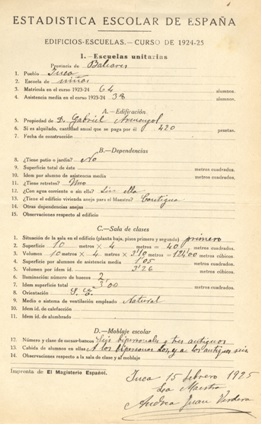 ESTADISTICA ESCOLAR DE ESPAÑA
EDIFICIOS-ESCUELAS.—CURSO DE 1924-25
I.—Escuelas unitarias
Provincia de Baleares
1. Pueblo Inca
2. Escuela de niños
3. Matrícula en el curso 1923-24 64 alumnos.
4. Asistencia media en el curso 1923-24 38 alumnos.
A.—Edificación.
5. Propiedad de D. Gabriel Armengol
6. Si es alquilado, cantidad anual que se paga por él 420 pesetas.
7. Fecha de construcción
B.—Dependencias
8. ¿Tiene patio o jardín? No
9. Superficie total de éste metros cuadrados.
10. Idem por alumno de asistencia media metros cuadrados.
11. ¿Tiene retretes? Uno
12. ¿Con agua corriente o sin ella? Sin ella
13. ¿Tiene el edificio vivienda aneja para el Maestro? Contigua
14. Otras dependencias anejas
15. Observaciones respecto al edificio
C.—Sala de clases
1. Situación de la sala en el edificio (planta baja, piso primero y segundo) primero
2. Superficie 10 metros × 4 metros = 40 metros cuadrados.
3. Volumen 10 metros × 4 metros metros cúbicos.
4. Superficie por alumnos de asistencia media 1'05 metros cuadrados.
5. Volumen por idem id. metros cúbicos.
6. Iluminación número de huecos 2
7. Idem superficie total metros cuadrados.
8. Orientación
9. Medio o sistema de ventilación empleado Natural
10. Idem id. de calefacción
11. Idem id. de alumbrado
D.—Moblaje escolar
12. Número y clase de mesas-bancos Seis bipersonales y tres antiguos
13. Cabida de alumnos en ellas
14. Observaciones respecto a la sala de clase y al moblaje
Imprenta de El Magisterio Español.
Inca 15 febrero 1925
La Maestra
Juan